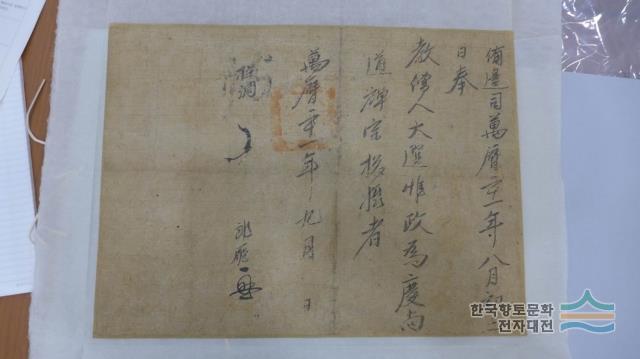 備邊司萬曆二十一年八月初二
日奉
教僧人大選惟政爲慶尙
道禪宗授牒者
萬曆二十一年九月 日
郎廳
한국향토문화
전자대전